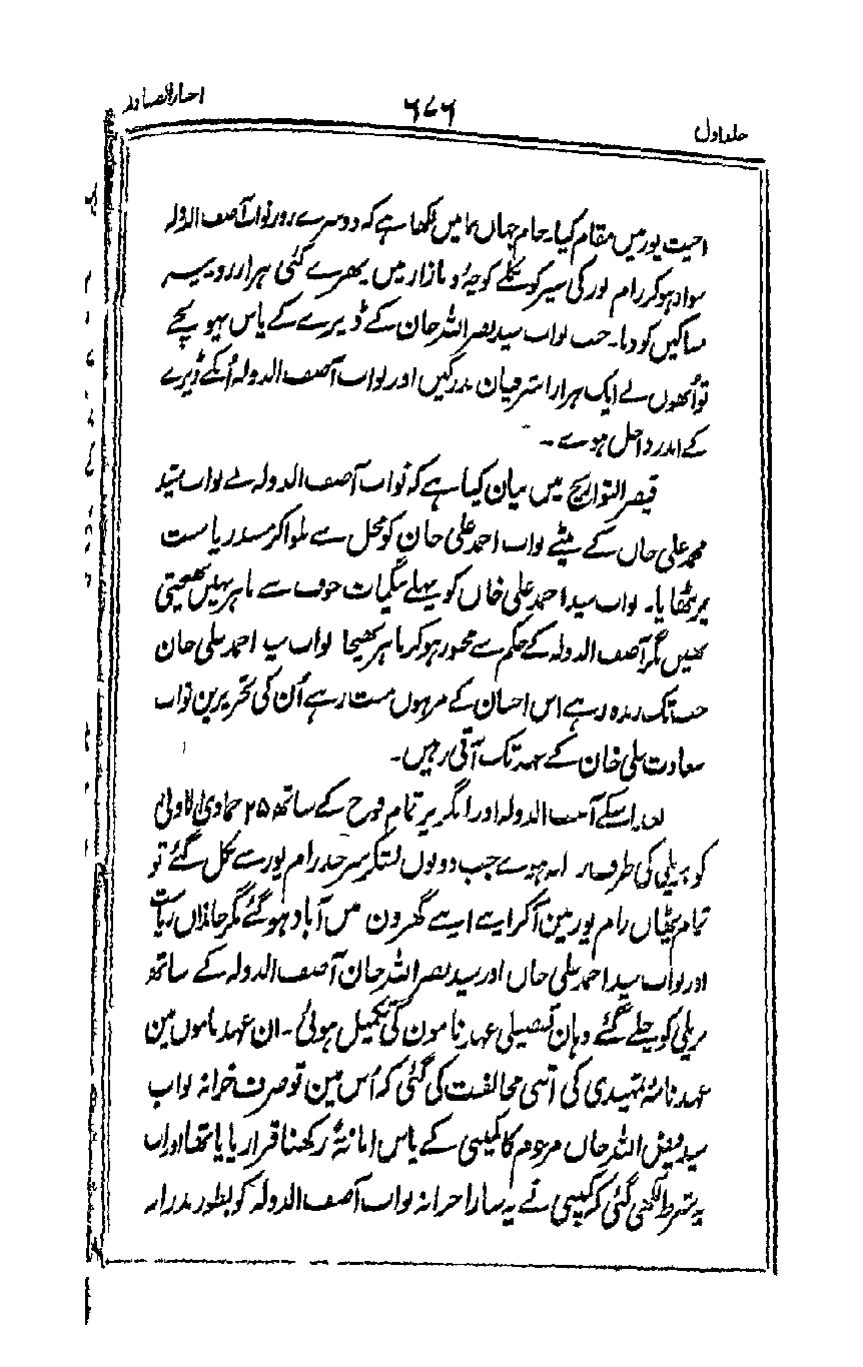 جلد اول ۶۷۶ اخبار الصنادید
اجیت پور میں مقام کیا۔ جام جہاں نما میں لکھا ہے کہ دوسرے روز نواب آصف الدولہ
سوار ہو کر رام پور کی سیر کو نکلے کوچہ و بازار میں پھرے کئی ہزار روپیہ
مساکین کو دیا۔ جب نواب سید نصر اللہ خان کے ڈیرے کے پاس پہونچے
تو اُنھوں نے ایک ہزار اشرفیان نذر کیں اور نواب آصف الدولہ اُنکے ڈیرے
کے اندر داخل ہوے۔
قیصر التواریخ میں بیان کیا ہے کہ نواب آصف الدولہ نے نواب سید
محمد علی خان کے بیٹے نواب احمد علی خان کو محل سے بلوا کر مسند ریاست
پر بٹھایا۔ نواب سید احمد علی خاں کو پہلے بیگمات خوف سے باہر نہیں بھیجتی
تھیں مگر آصف الدولہ کے حکم سے مجبور ہو کر باہر بھیجا نواب سید احمد علی خان
جب تک زندہ رہے اس احسان کے مرہون منت رہے اُن کی تحریرین نواب
سعادت علی خان کے عہد تک آتی رہیں۔
بعد اسکے آصف الدولہ اور انگریز تمام فوج کے ساتھ ۲۵ جمادی الاولیٰ
کو بریلی کی طرف روانہ ہوے جب دونوں لشکر سرحد رام پور سے نکل گئے تو
تمام پٹھان رام پور مین آکر اپنے اپنے گھرون میں آباد ہو گئے مگر خاندان ریاست
اور نواب سید احمد علی خاں اور سید نصر اللہ خان آصف الدولہ کے ساتھ
بریلی کو چلے گئے وہان تفصیلی عہد نامون کی تکمیل ہوئی۔ ان عہد ناموں مین
عہد نامۂ تمہیدی کی اتنی مخالفت کی گئی کہ اُس مین تو صرف خزانہ نواب
سید فیض اللہ خاں مرحوم کا کمپنی کے پاس امانتہً رکھنا قرار پایا تھا اور اب
یہ شرط لکھی گئی کہ کمپنی نے یہ سارا خزانہ نواب آصف الدولہ کو بطور نذرانہ